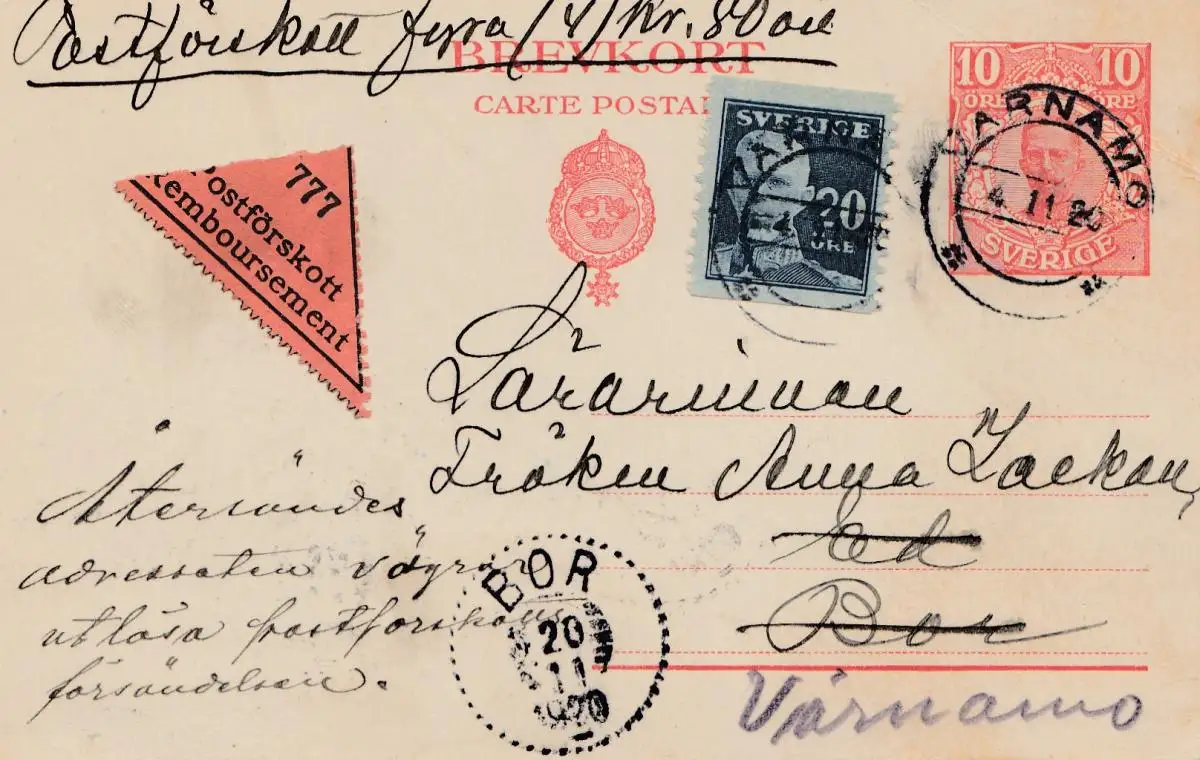 Postförskott fyra (4) Kr. 80 öre
BREVKORT
CARTE POSTAL
10 10
ÖRE ÖRE
SVERIGE
VÄRNAMO
4 11 20
SVERIGE
20
ÖRE
777
Postförskott
Remboursement
Lärarinnan
Fröken Anna
Ed
Bor
Värnamo
Återsändes
adressaten vägrar
utlösa postförskotts
försändelsen.
BOR
20
11
1920